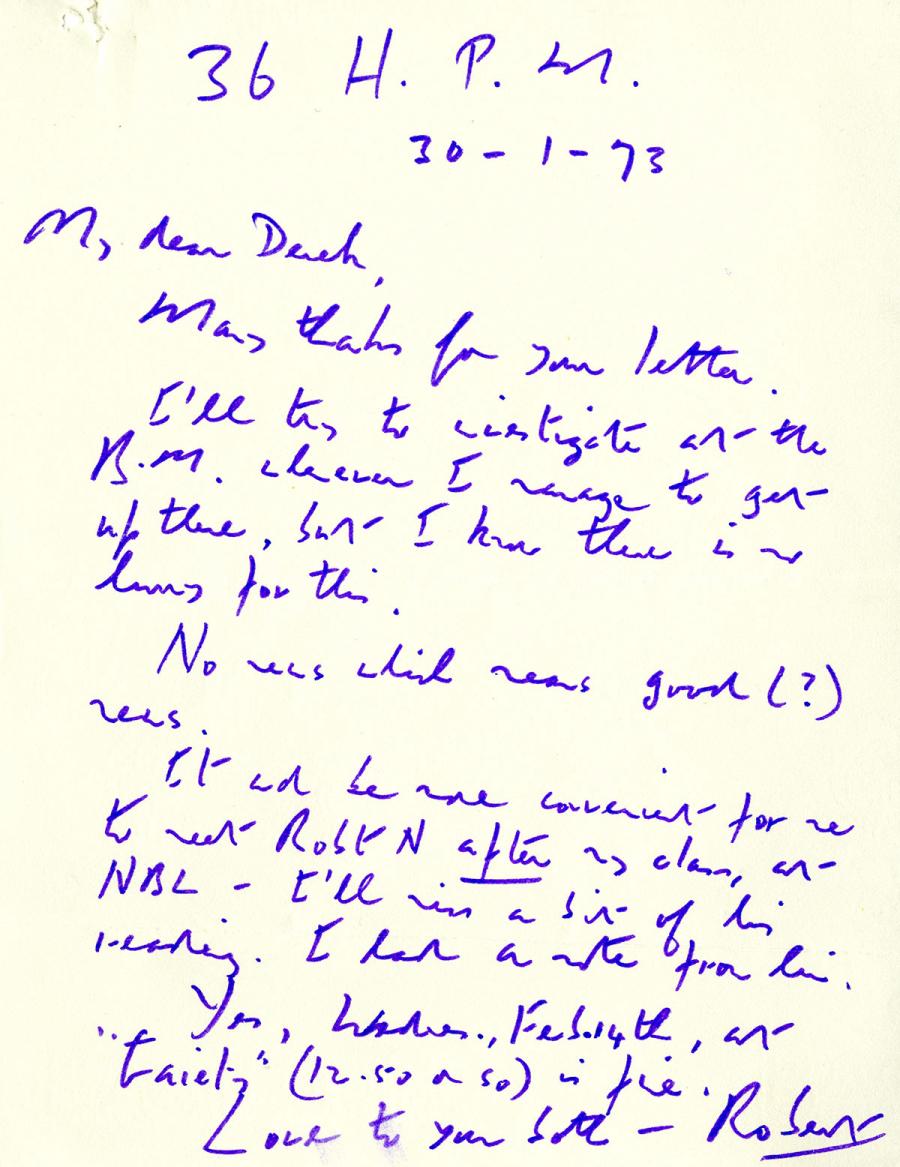 36 H. P. M.
30-1-73
My dear Derek,
Many thanks for your letter.
I'll try to investigate at the
B.M. whenever I manage to get
up there, but I know there is no
hurry for this.
No news which means good (?)
news.
It wd be more convenient for me
to meet Robt N after my class, at
NBL - I'll miss a bit of his
reading. I had a note from him.
Yes, Wednes., Feb. 14th, at
"Gaiety" (12.50 or so) is fine.
Love to you both - Robert